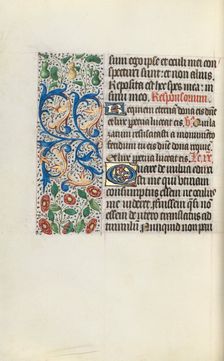 sum ego ipse et oculi mei con
specturi sunt: et non alius.
Reposita est hec spes mea: in
sinu meo. Responsorium.
Requiem eternam dona eis dñe
et lux perpetua luceat eis. Qui la
zarum resuscitasti a monumento
fetidum tu eis dñe dona requiē
et lux perpetua luceat eis.
Quare de vulva eduxi
sti me qui utinam
consumptus essem ne oculus
me videret. fuissem quasi nō
essem de utero translatus ad
tumulum Nunquid non pau